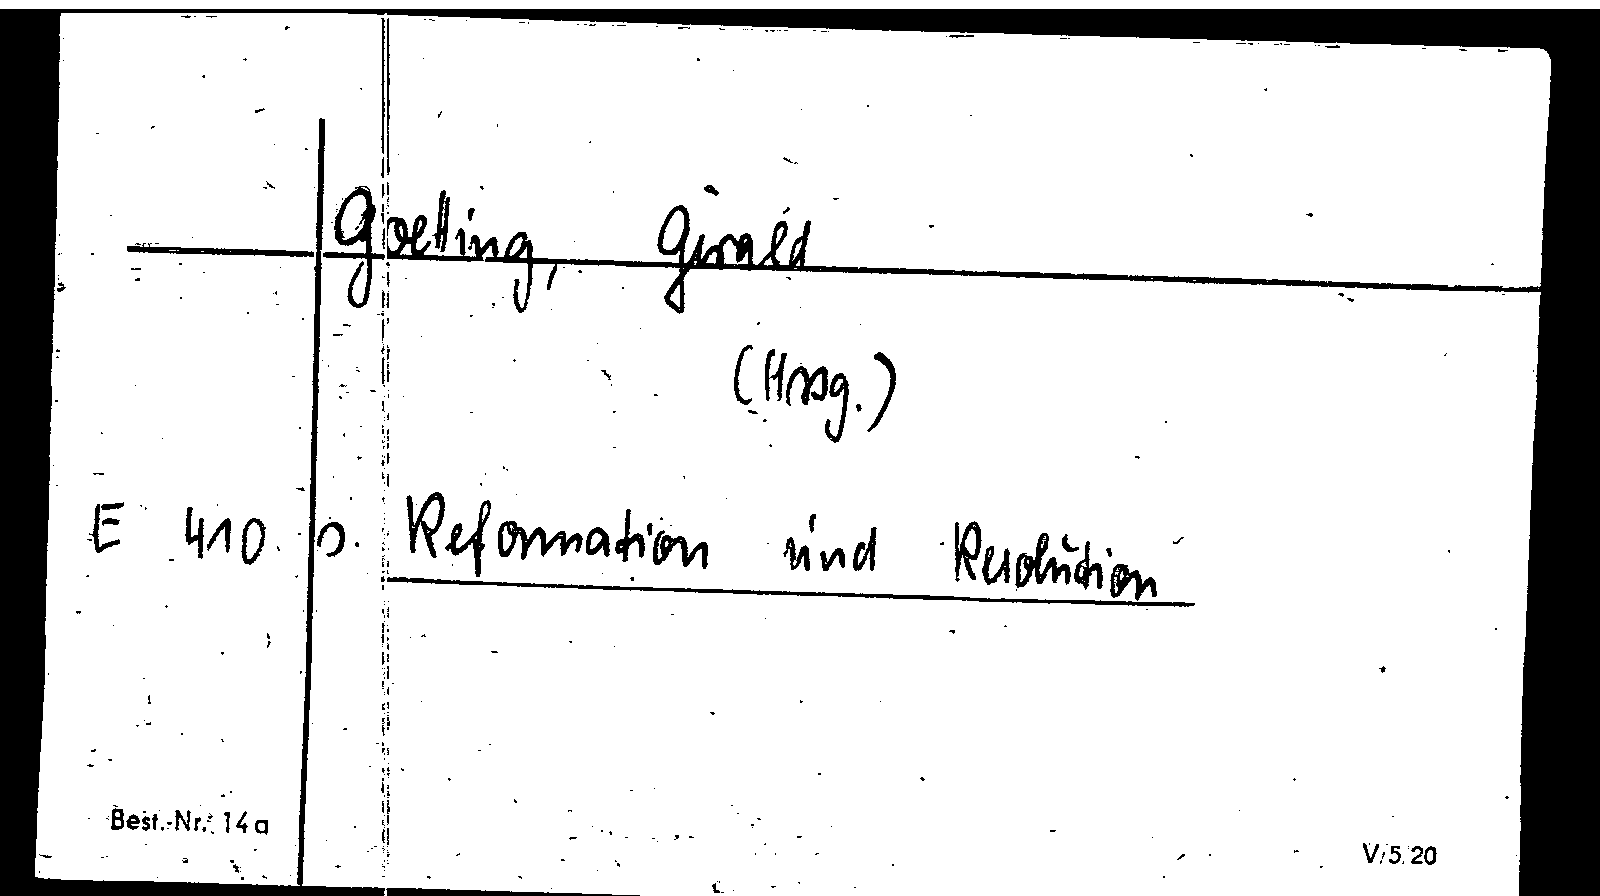 Goetting, Gerald
(Hrsg.)
E 410 s. Reformation und Revolution
Best.-Nr. 14a
V/5 20